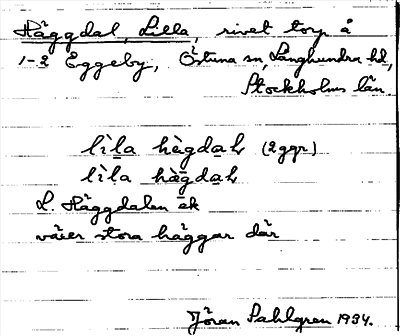 Häggdal, Lilla, rivet torp å
1-2 Eggeby, Östuna sn, Långhundra hd,
Stockholms län.
lìla hègdaL (2 ggr)
lìla hæ̀gdaL
L. Häggdalen åk
växer stora häggar där
Jöran Sahlgren 1934.